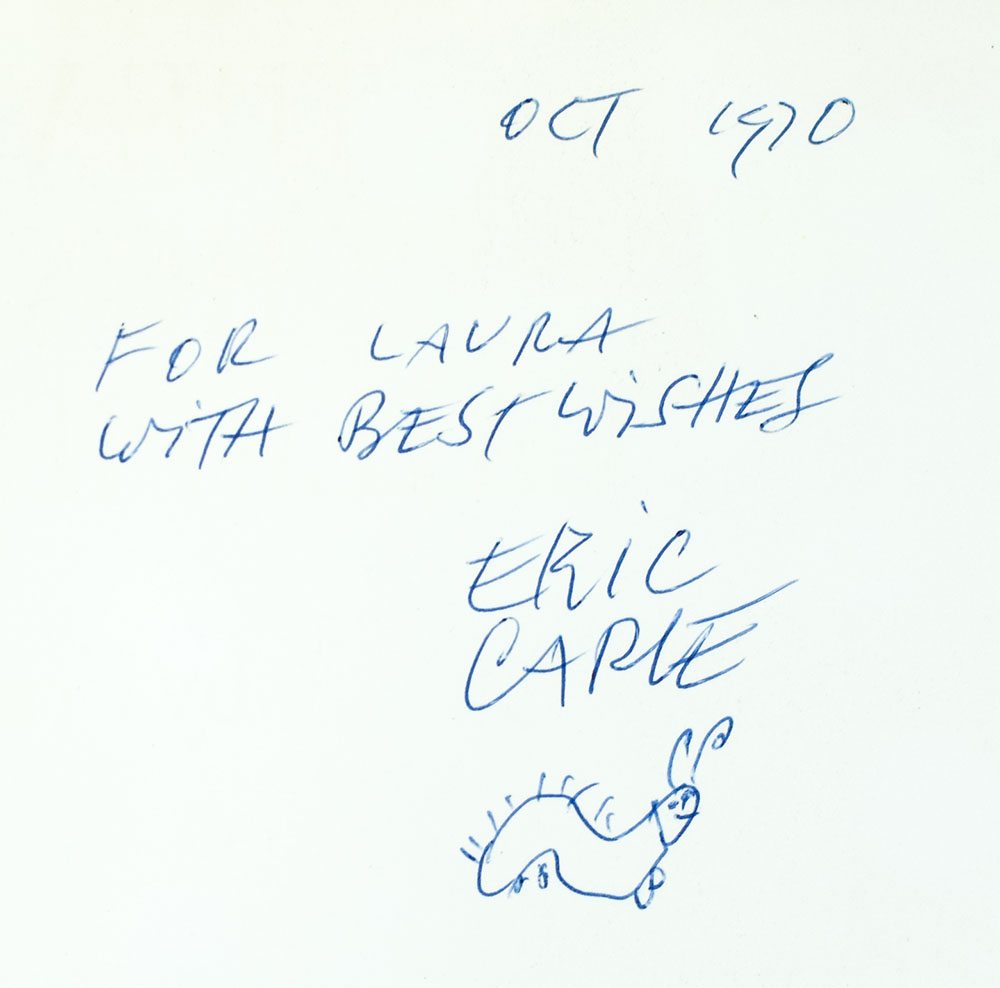 OCT 1970
FOR LAURA
WiTH BEST WiSHES
ERiC
CARLE